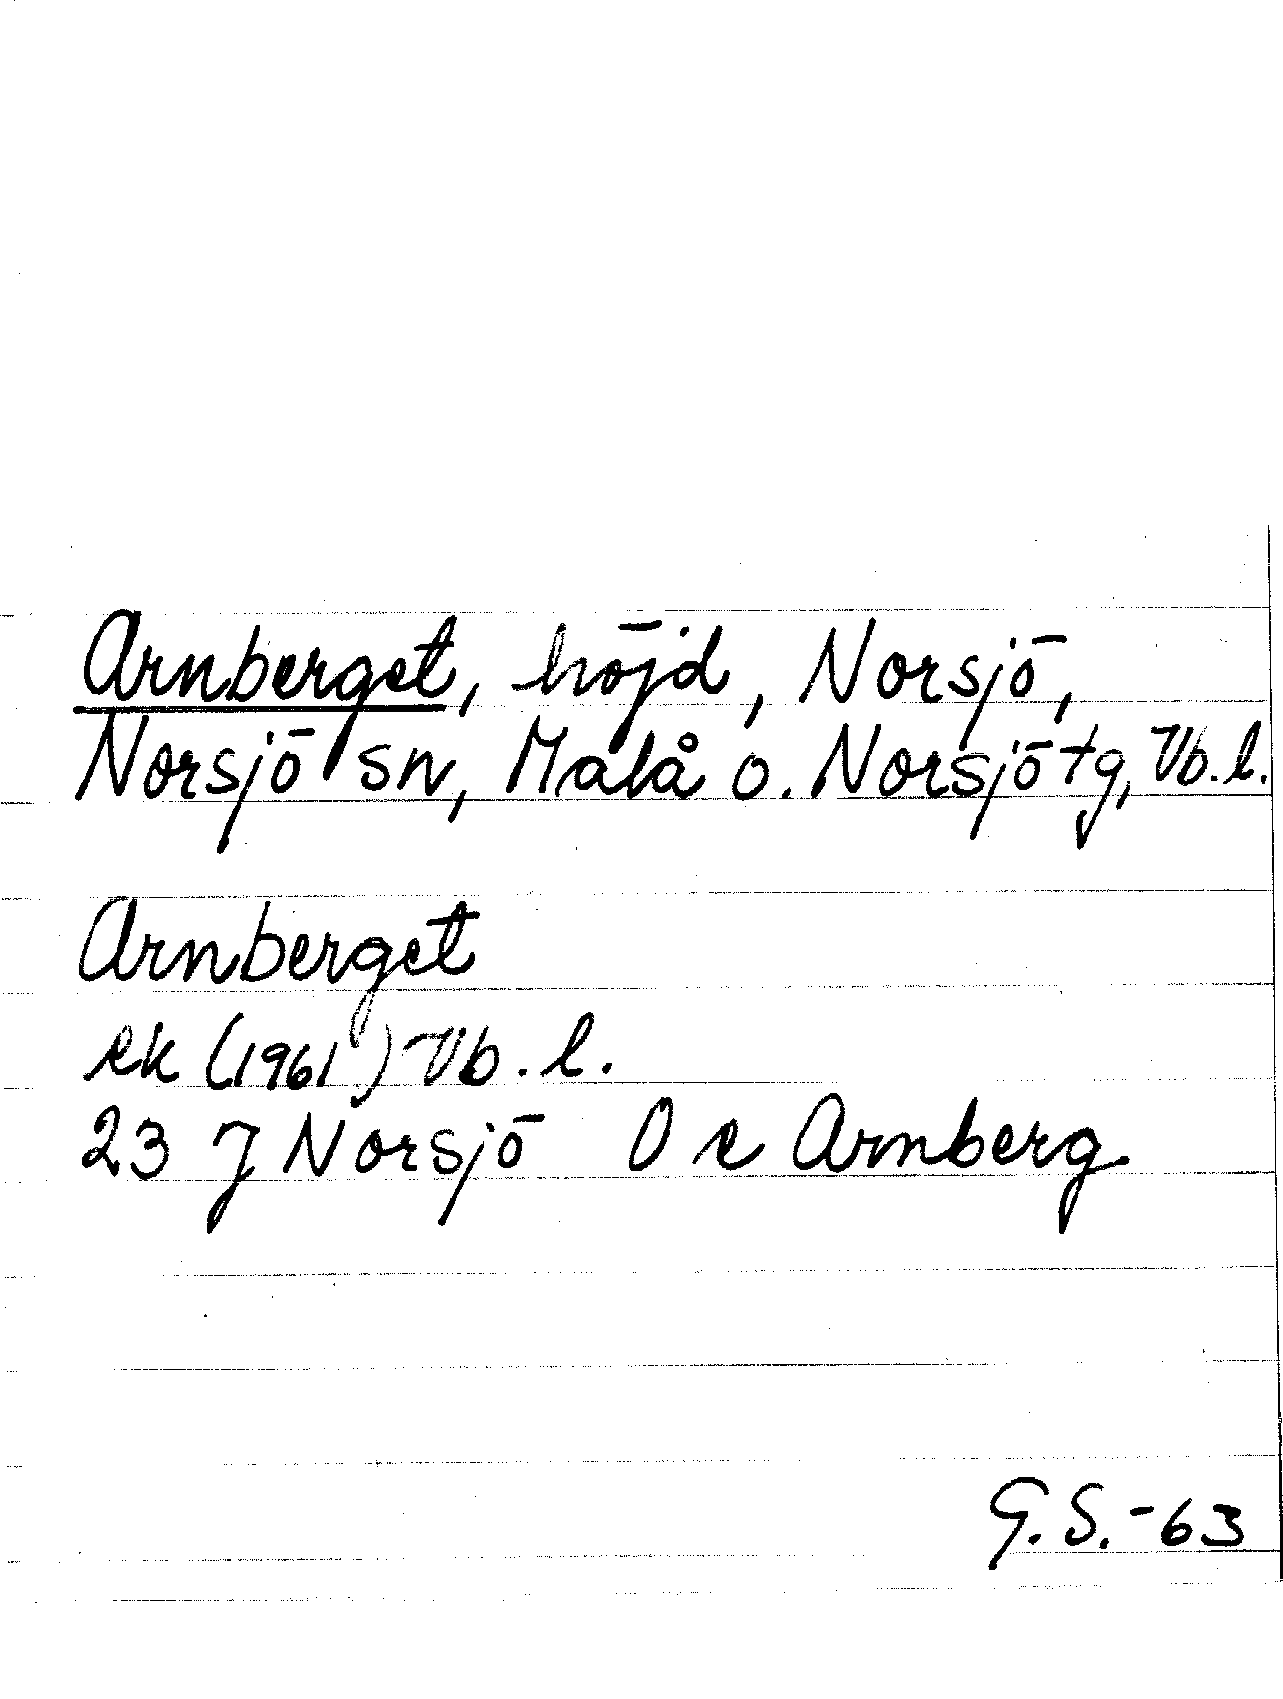 Arnberget, höjd, Norsjö,
Norsjö sn, Malå o. Norsjö tg, Vb. l.
Arnberget
ek (1961) Vb. l.
23 J Norsjö O e Arnberg
G. S. -63